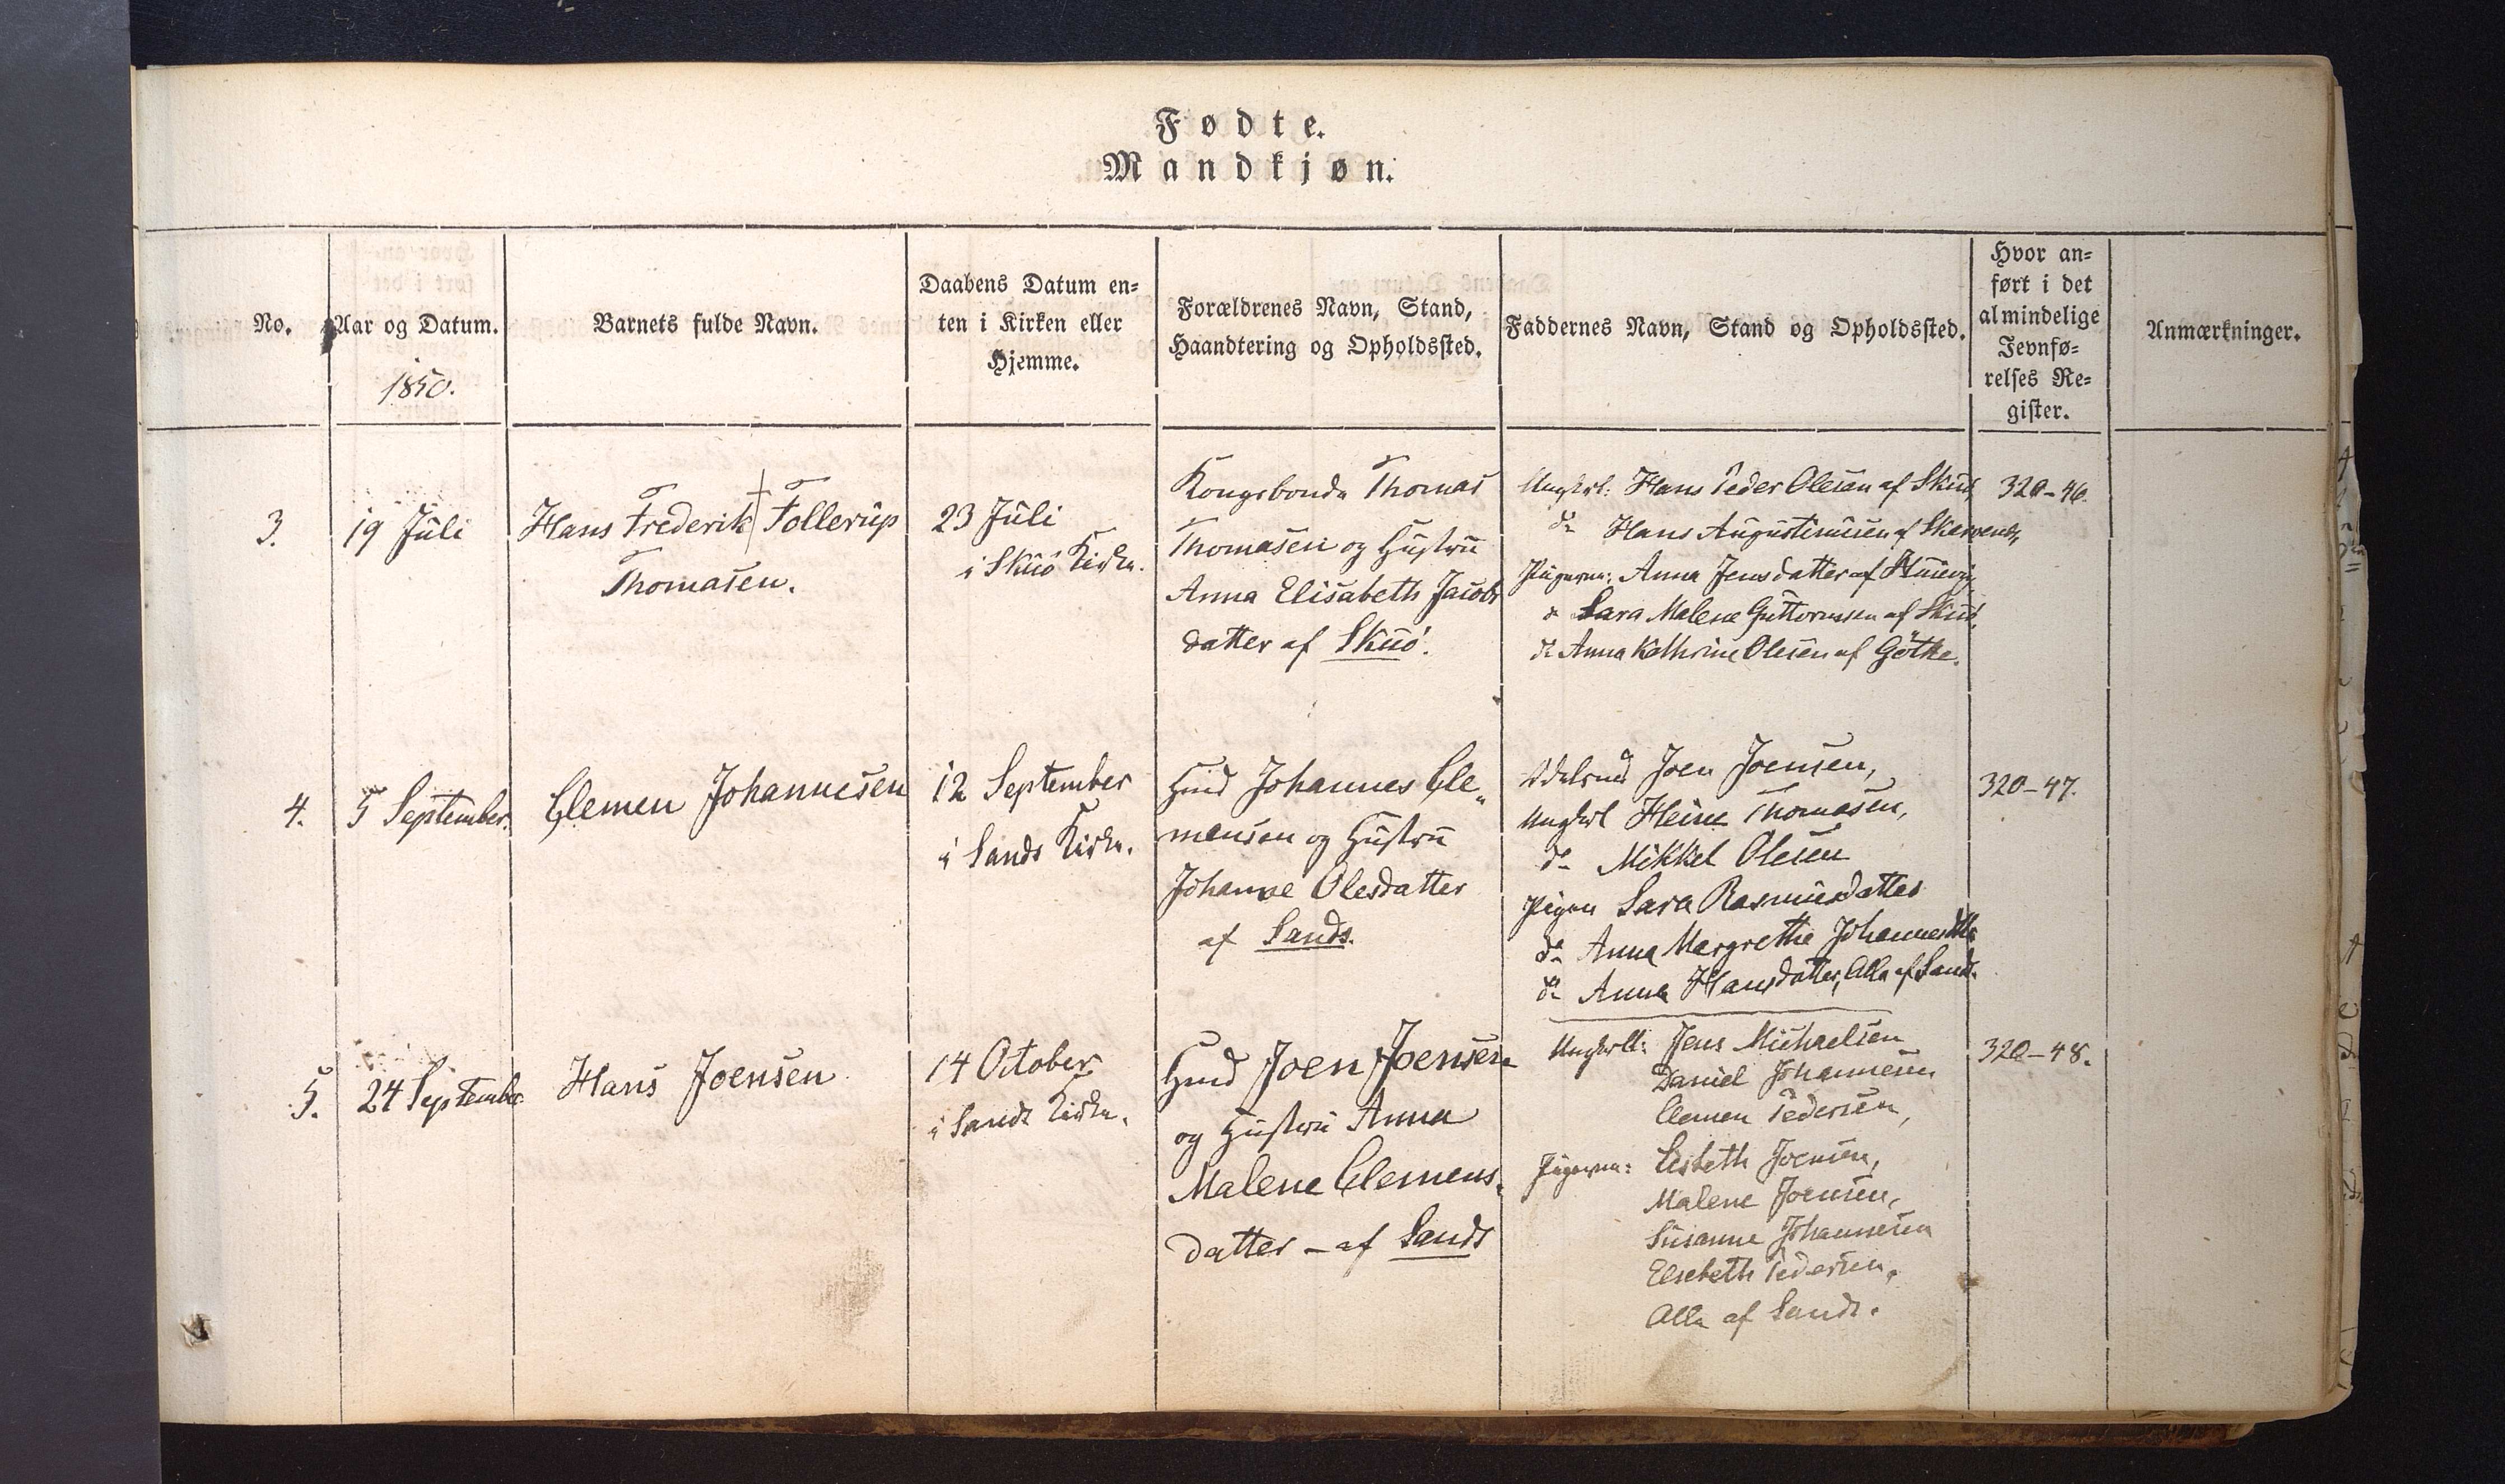 Fødte.
Mandkjøn.
No.
Aar og Datum.
1850.
Barnets fulde Navn.
Daabens Datum en-
ten i Kirken eller
Hjemme.
Forældrenes Navn, Stand,
Haandtering og Opholdssted.
Faddernes Navn, Stand og Opholdssted.
Hvor an-
ført i det
almindelige
Jevnfø-
relses Re-
gister.
Anmærkninger.
3.
19 Juli
Hans Frederik Follerup
Thomasen.
23 Juli
i Skuö Kirke.
Kongsbonde Thomas
Thomasen og Hustru
Anna Elisabeth Jacobs
datter af Skuö.
Ungkrl: Hans Peder Olesen af Skuö,
do Hans Augustinusen af
Pigerne: Anna Jensdatter af
do Sara Malene Guttormsen af Skuö.
do Anna Kathrine Olesen af Göthe.
320-46.
4.
5 September.
Clemen Johannesen
12 September
i Sands Kirke.
Huusmd Johannes Cle„
mensen og Hustru
Johanne Olesdatter
af Sands.
Joen Joensen,
Ungkrl Heine Thomasen,
do Mikkel Olesen
Pigen Sara Rasmusdatter
do Anna Margrethe Johannesdtte
do Anna Hansdatter, Alle af Sand.
320-47.
5.
24 September
Hans Joensen
14 October
i Sands Kirke.
Joen Joensen
og Hustru Anna
Malene Clemens.
datter - af Sands
Ungkrll: Jens Michaelsen
Daniel Johannesen
Clemen Pedersen,
Pigerne: Lisbeth Joensen,
Malene Joensen,
Susanne Johannesen
Elsebeth Pedersen,
Alle af Sands.
320-48.